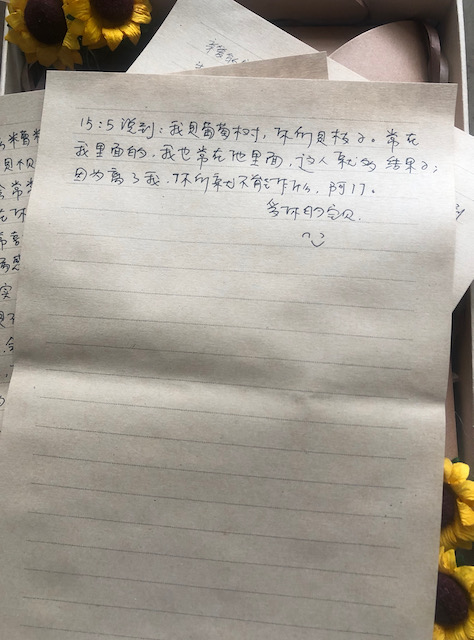 15:5说到:我是葡萄树,你们是枝子。常在
我里面的,我也常在他里面,这人就多结果子;
因为离了我,你们就不能作什么,阿门。
等你的宝贝